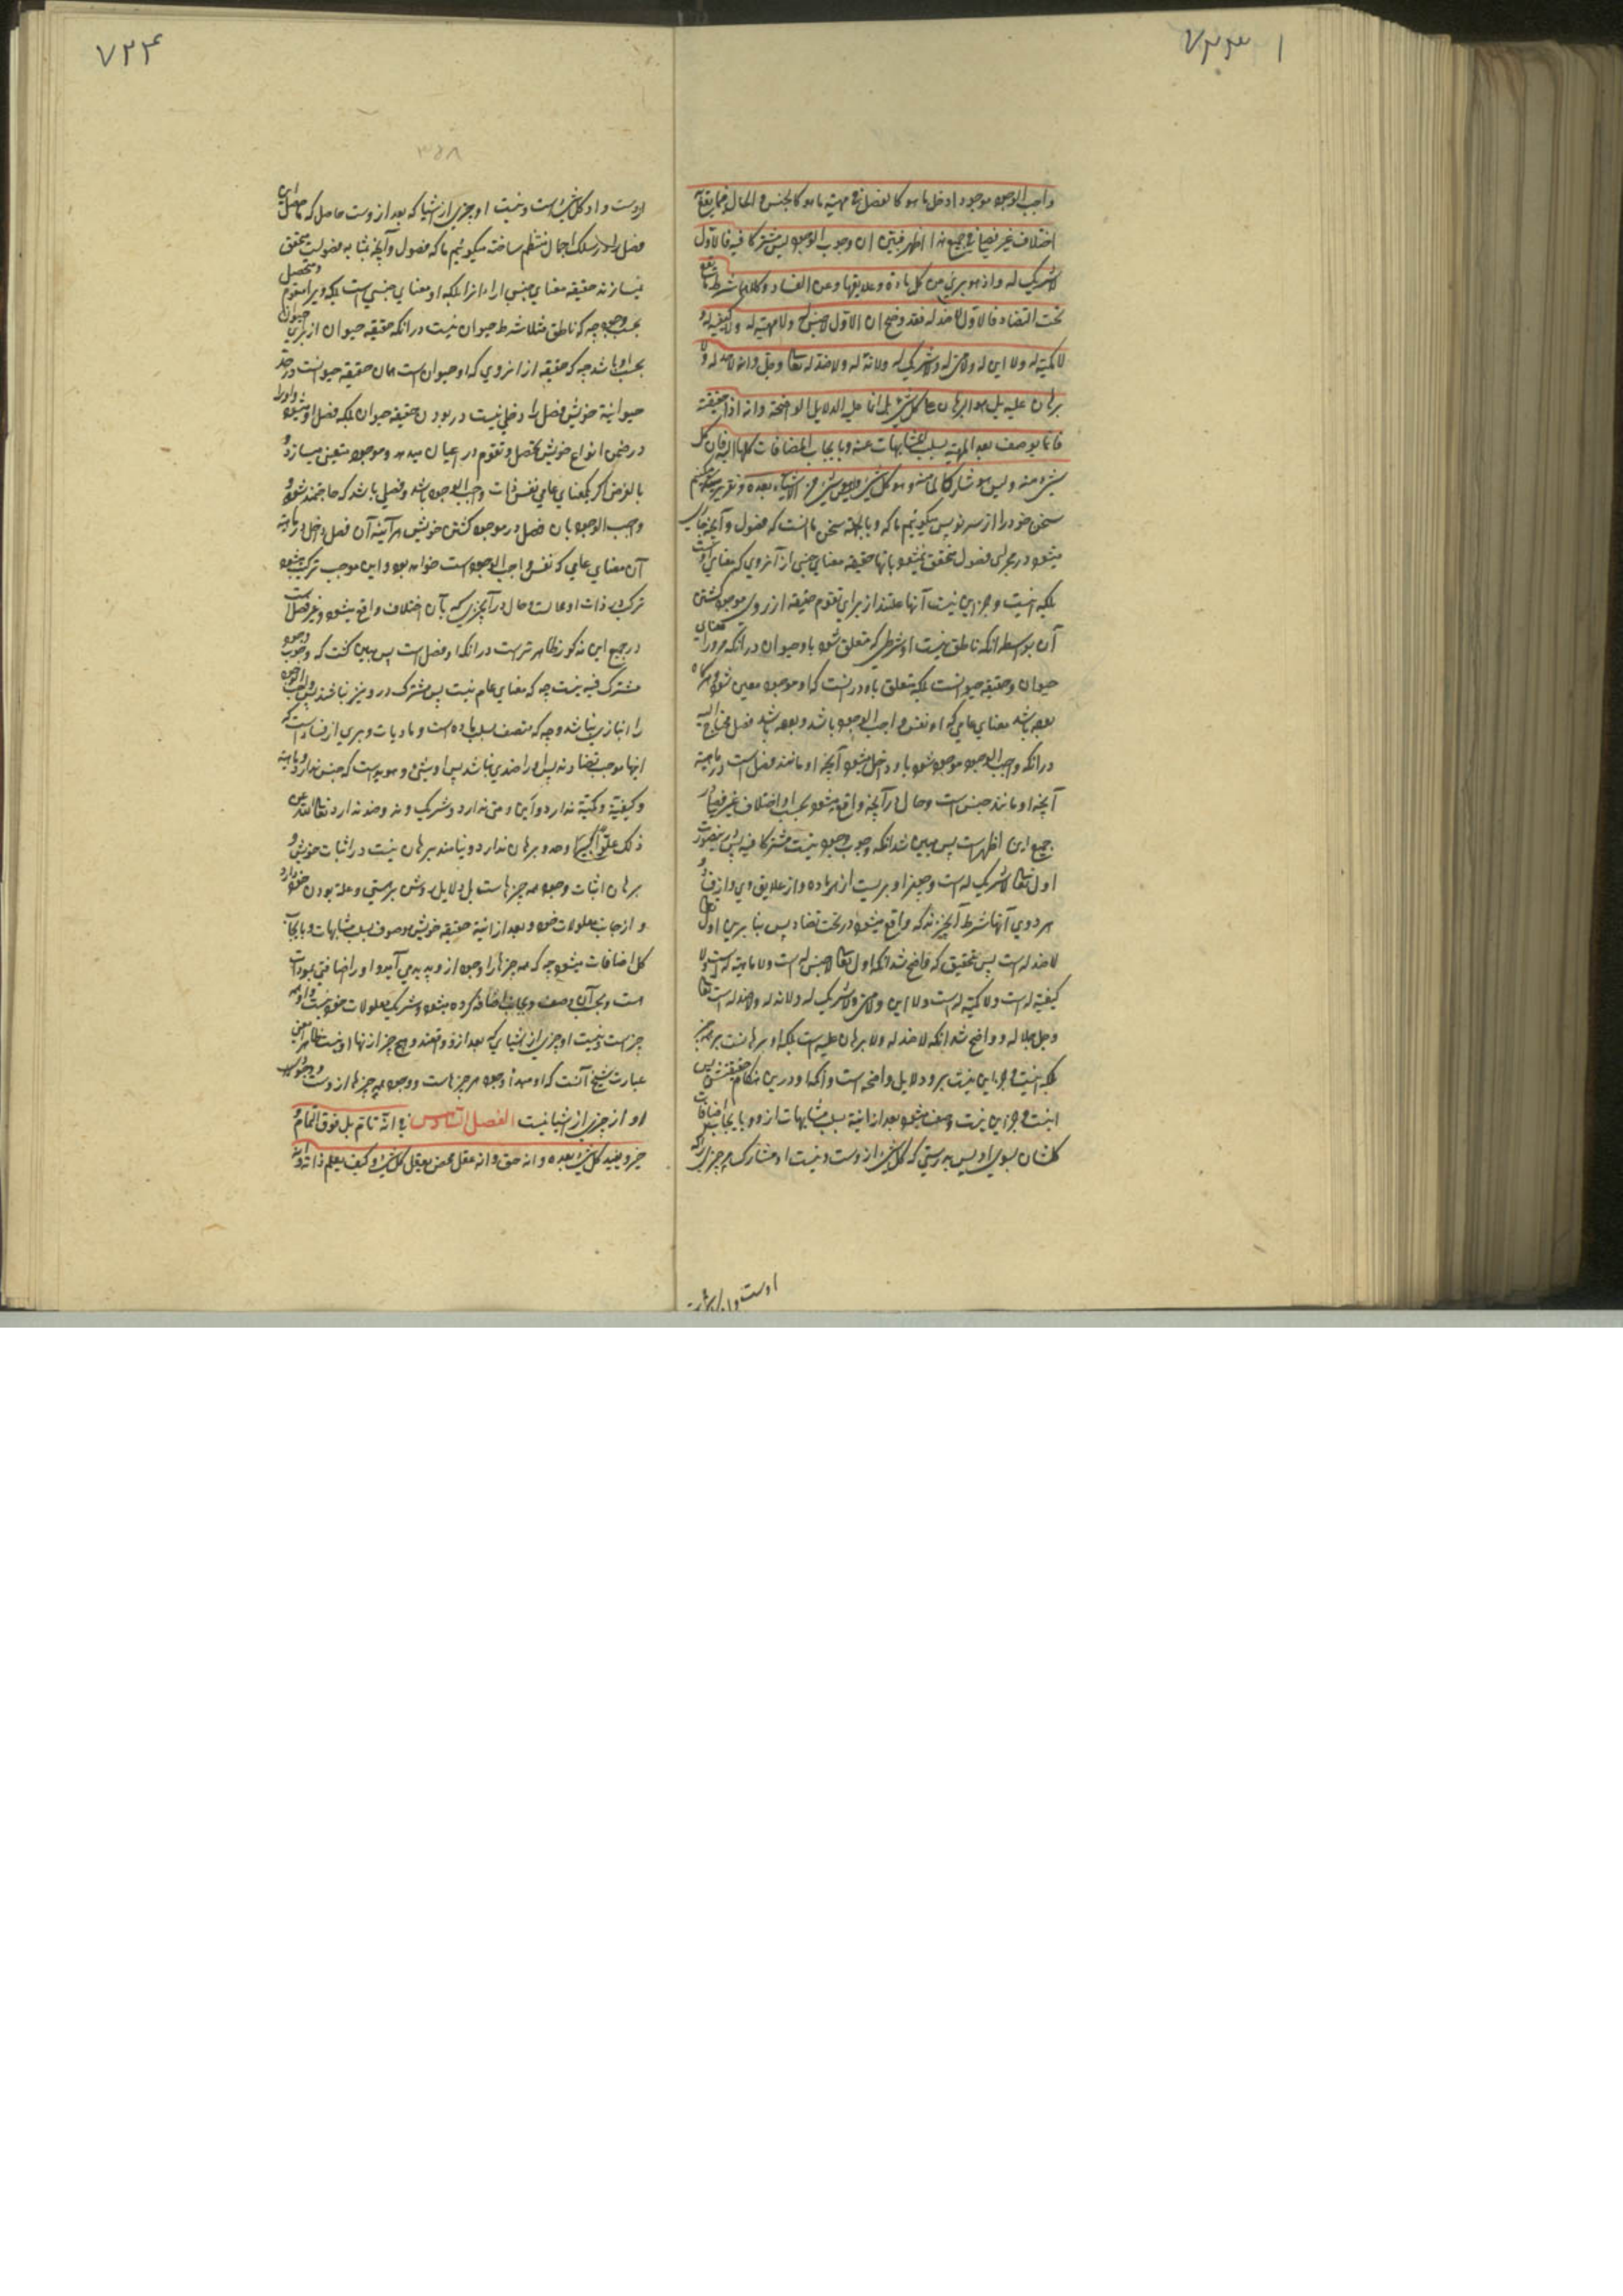 ۷۳۳
واجب الوجود موجودا دخل ما هو کالفصل فی مهیة ما هو کالجنس و الحال فیما یقع به
اختلاف غیر فصلی فی جمیع هذا اظهر فتبین ان وجوب الوجود لیس مشترکا فیه فالاول
لا شریک له و اذ هو بری من کل مادة و علایقها و عن الفساد و کلاهما شرط ما یقع
تحت التضاد فالاول لا ضد له فقد وضح ان الاول لا جنس له و لا مهیة له و لا کیفیة له و
لا کمیة له و لا این له و لا متی له و لا شریک له و لا ند له و لا ضد له تعالی و جل و انه لا حد له و لا
برهان علیه بل هو البرهان علی کل شئ بل انما علیه الدلایل الواضحة و انه اذا حققته
فانما یوصف بعد الانیة بسلب المشابهات عنه و بایجاب الاضافات کلها الیه فان کل
شئ منه و لیس هو مشارکا لما منه و هو کل شئ و لیس شئ من الاشیاء بعده
سخن خود را از سر نو پس میگوئیم ما که و بالجمله سخن ما انست که فصول و آنچه جاری
میشود در مجرای فصول متحقق نمیشود بانها حقیقه معنای جنسی از آنروی که معنای اوست
بلکه انیست و جز این نیست آنها علتند از برای تقوم حقیقه از روی موجود گشتن
آن بواسطه انکه ناطق نیست او شرطی که متعلق شود باو حیوان در انکه مر او را معنای
حیوان و حقیقه حیوانست بلکه متعلق باو در انست که او موجود معین شود و هرگاه
بوده باشد معنای عامی که او نفس واجب الوجود باشد و بوده باشد فصل محتاج الیه
در انکه واجب الوجود موجود شود باو داخل میشود آنچه او مانند فصل است در ماهیة
آنچه او مانند جنس است و حال در آنچه واقع میشود بحسب او اختلاف غیر فصلی در
جمیع این اظهر است پس مبین شد انکه وجوب وجود نیست مشترکا فیه پس درینصورت
اول تعالی لا شریک له است و چون او بریست از هر ماده و از علایق وی و از فساد و
هر دوی آنها شرط آنچیزند که واقع میشود در تحت تضاد پس بنابرین اول تعالی
لا ضد له است پس بتحقیق که واضح شد انکه اول تعالی لا جنس له است و لا ماهیة له است و لا
کیفیة له است و لا کمیة له است و لا این و لا متی و لا شریک له و لا ند له و لا ضد له است تعالی
و جل جلاله و واضح شد انکه لا حد له و لا برهان علیه است بلکه او برهانست بر هر چیز
بلکه انیست و جز این نیست برو دلایل واضحه است و انکه او درین هنگام حقیقتش پس
انیست و جز این نیست وصف میشود بعد از انیة بسلب مشابهات ازو و بایجاب اضافات
کلشان بسوی او پس بدرستی که کل شئ از وست و نیست او مشارک هر چیزی را که
۷۳۴
۳۶۸
اوست و او کل شئ است و نیست او چیزی از اشیا که بعد از وست حاصل که ما حاصل این
فصل را در سلک اجمال منتظم ساخته میگوئیم ما که فصول و آنچه مشابه فصولست متحقق
نمیسازند حقیقه معنای جنس را از انرو که او معنای جنسی است بلکه ویرا مقوم و محصل
بحسب وجود چه که ناطق مثلا شرط حیوان نیست در انکه حقیقه حیوان از برای حیوان
بحسب او باشد چه که حقیقه از انروی که او حیوان است همان حقیقه حیوانست و در حد
حیوانیة خویش فصل را دخلی نیست در بودن حقیقه حیوان بلکه فصل او میشود و او را
در ضمن انواع خویش تحصل و تقوم در اعیان میدهد و موجود متعین میسازد و
بالفرض اگر یکمعنای عامی نفس ذات واجب الوجود باشد و فصلی باشد که حاجتمند شود
واجب الوجود بان فصل در موجود گشتن خویش هر آینه آن فصل داخل در ماهیة
آن معنای عامی که نفس واجب الوجود است خواهد بود و این موجب ترکب میشود
ترکب در ذات او محالست و حال در آنچیزی که بآن اختلاف واقع میشود و غیر فصل است
در جمیع این مذکور ظاهر تر است در انکه او فصل است پس مبین گشت که وجوب وجود
مشترک فیه نیست چه که معنای عام نیست پس مشترک درو نیز نباشد پس واجب الوجود
را انبازی نباشد و چه که متصف بسلب ماده است و مادیات و بری از فساد است که
اینها موجب تضادند پس او را ضدی نباشد پس روشن و هویداست که جنس ندارد و ماهیة
و کیفیة و کمیة ندارد و این و متی ندارد و شریک و ند و ضد ندارد تعالی الله عن
ذلک علوا کبیرا و حد و برهان ندارد و نیازمند برهان نیست در اثبات خویش و
برهان اثبات وجود همه چیزهاست بل دلایل روشن بر هستی و علة بودن خود دارد
و از جانب معلولات خود و بعد از انیة حقیقه خویش موصوف بسلب مشابهات و بایجاب
کل اضافات میشود چه که همه چیزها را وجود ازو پدید می آید و او را اضافتی بموجودات
است و بحسب آن وصف و بجانب اضافه کرده میشود و شریک معلولات خود نیست و او همه
چیز است و نیست او چیزی از اشیای که بعد ازو واقعند و هیچ چیز از انها او نیست ظاهر معنی
عبارت شیخ آنست که او مبدأ وجود هر چیز هاست و وجود همه چیزها از وست و وجود
او از چیزی از اشیا نیست الفصل السادس فی انه تام بل فوق التمام و
خیر و مفید کل شئ بعده و انه حق و انه عقل محض یعقل کل شئ و کیف یعلم ذاته و انه